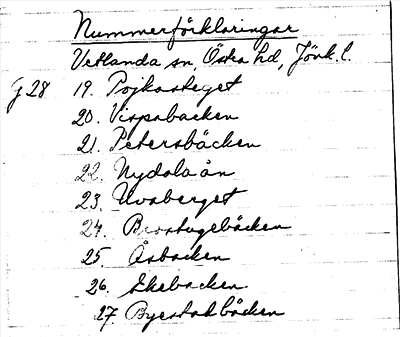 Nummerförklaringar
Vetlanda sn, Östra hd, Jönk. l.
G 28 19. Pojkasteget
20. Vispabacken
21. Petersbäcken
22. Nydalaån
23. Uvaberget
24. Brostugebäcken
25. Åsbacken
26. Ekebacken
27 Byestadbäcken